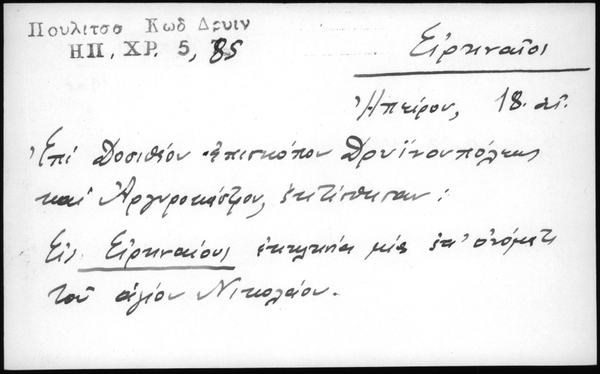 Πουλιτσα Κωδ Δρυιν
ΗΠ. ΧΡ. 5, 85
Εἰρηναῖοι
Ἠπείρου, 18. αἰ.
Ἐπὶ Δοσιθέου ἐπισκόπου Δρυϊνουπόλεως
καὶ Ἀργυροκάστρου, ἐκτίσθησαν:
Εἰς Εἰρηναίους ἐκκλησία μία ἐπ' ὀνόματι
τοῦ ἁγίου Νικολάου.